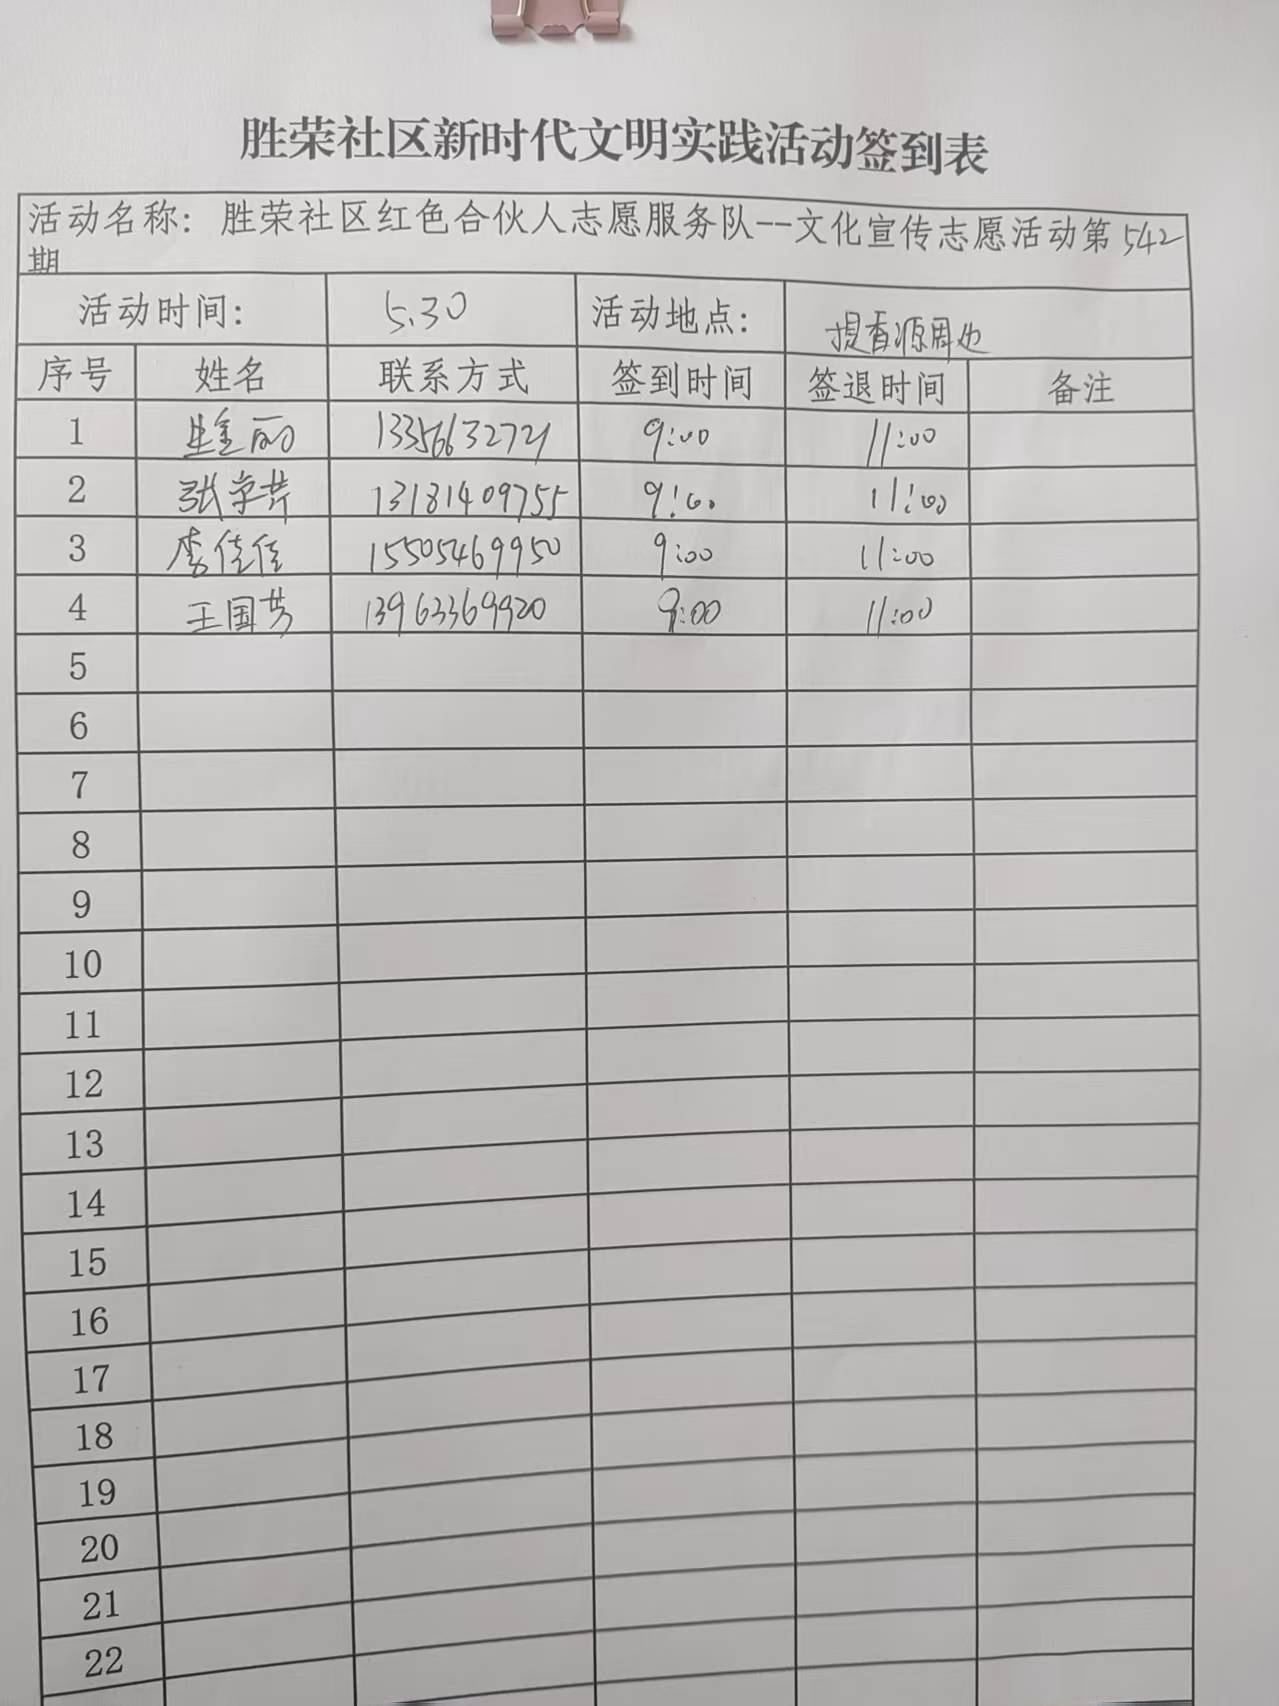 胜荣社区新时代文明实践活动签到表
活动名称：胜荣社区红色合伙人志愿服务队--文化宣传志愿活动第542
期
活动时间： 5.30 活动地点： 提香源周边
序号 姓名 联系方式 签到时间 签退时间 备注
1 丽 9:00 11:00
2 张 13181409755 9:00 11:00
3 李佳佳 15505469950 9:00 11:00
4 王国芳 13963369920 9:00 11:00
5
6
7
8
9
10
11
12
13
14
15
16
17
18
19
20
21
22